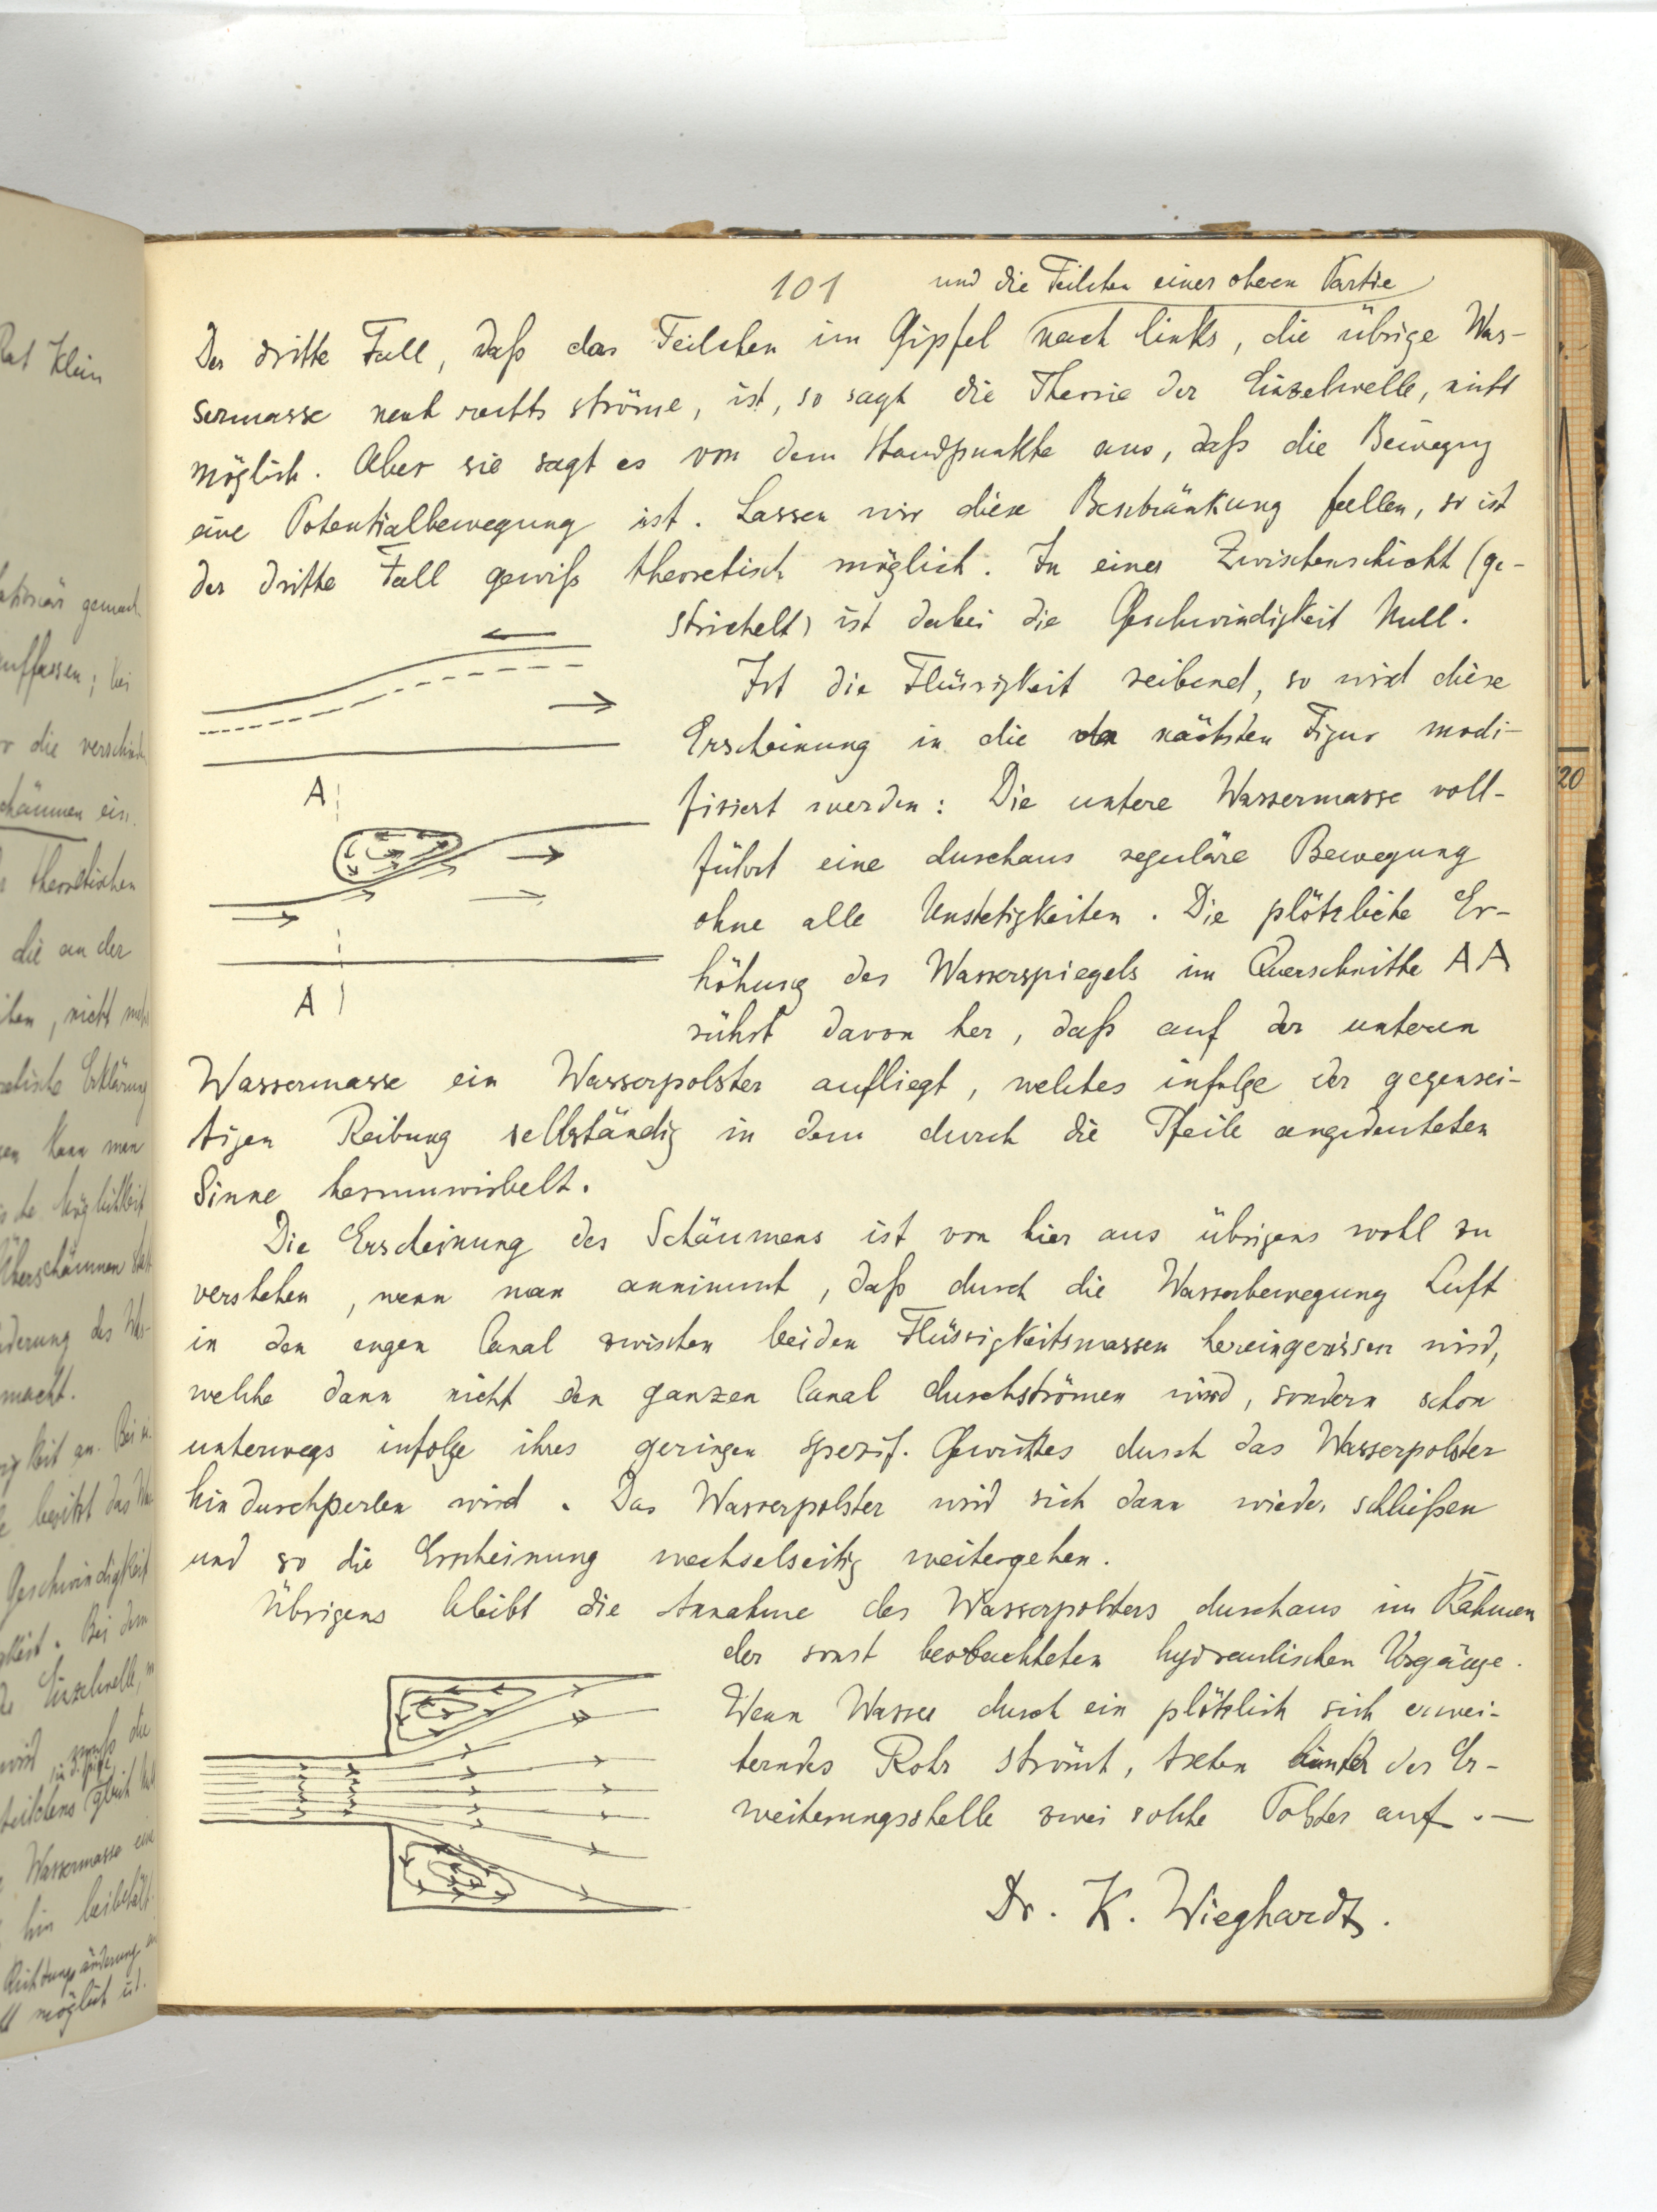 Rat Klein
stationär gemacht
auffassen; bei
die verschied
schäumen ein.
theoretischen
die an der
nicht mehr
Erklärung
kann man
Möglichkeit
Überschäumen statt
änderung des Was-
macht.
keit an. Bei
besitzt das Wa
Geschwindigkeit
Bei dem
Einzelwelle,
wird muß die
teilchens gleich Null
Wassermasse eine
hin beibehält
Richtungsänderung
möglich ist.
101
und die Teilchen einer oberen Partie
Der dritte Fall, daß das Teilchen im Gipfel nach links, die übrige Was-
sermasse nach rechts ströme, ist, so sagt die Theorie der Einzelwelle, nicht
möglich. Aber sie sagt es von dem Standpunkte aus, daß die Bewegung
eine Potentialbewegung ist. Lassen wir diese Beschränkung fallen, so ist
der dritte Fall gewiß theoretisch möglich. In einer Zwischenschicht (ge-
strichelt) ist dabei die Geschwindigkeit Null.
Ist die Flüssigkeit reibend, so wird diese
Erscheinung in die der nächsten Figur modi-
fiziert werden: Die untere Wassermasse voll-
führt eine durchaus reguläre Bewegung
ohne alle Unstetigkeiten. Die plötzliche Er-
höhung des Wasserspiegels im Querschnitte AA
rührt davon her, daß auf der unteren
A
A
Wassermasse ein Wasserpolster aufliegt, welches infolge der gegensei-
tigen Reibung selbständig in dem durch die Pfeile angedeuteten
Sinne herumwirbelt.
Die Erscheinung des Schäumens ist von hier aus übrigens wohl zu
verstehen, wenn man annimmt, daß durch die Wasserbewegung Luft
in den engen Canal zwischen beiden Flüssigkeitsmassen hereingerissen wird,
welche dann nicht den ganzen Canal durchströmen wird, sondern schon
unterwegs infolge ihres geringen spezif. Gewichtes durch das Wasserpolster
hindurchperlen wird. Das Wasserpolster wird sich dann wieder schließen
und so die Erscheinung wechselseitig weitergehen.
Übrigens bleibt die Annahme des Wasserpolsters durchaus im Rahmen
der sonst beobachteten hydraulischen Vorgänge.
Wenn Wasser durch ein plötzlich sich erwei-
terndes Rohr strömt, treten hinter der Er-
weiterungsstelle zwei solche Polster auf. —
Dr. K. Wieghardt.
20